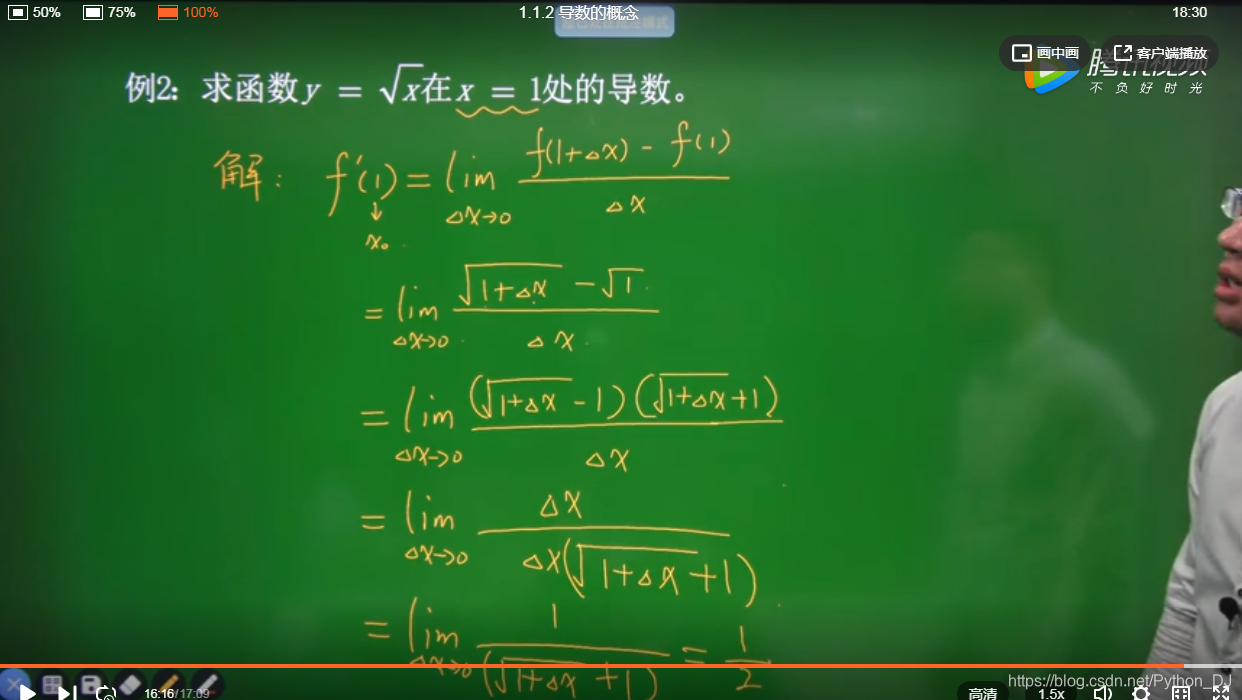 50% 75% 100% 1.1.2 导数的概念 18:30
画中画 客户端播放
腾讯视频
不负好时光
例2：求函数y = √x在x = 1处的导数。
解： f′(1) = lim Δx→0 (f(1+Δx) - f(1)) / Δx
↓
x₀
= lim Δx→0 (√(1+Δx) - √1) / Δx
= lim Δx→0 (√(1+Δx) - 1)(√(1+Δx) + 1) / Δx
= lim Δx→0 Δx / Δx(√(1+Δx) + 1)
= lim Δx→0 1 / (√(1+Δx) + 1) = 1/2
https://blog.csdn.net/Python_DJ
16:16/17:09 高清 1.5x